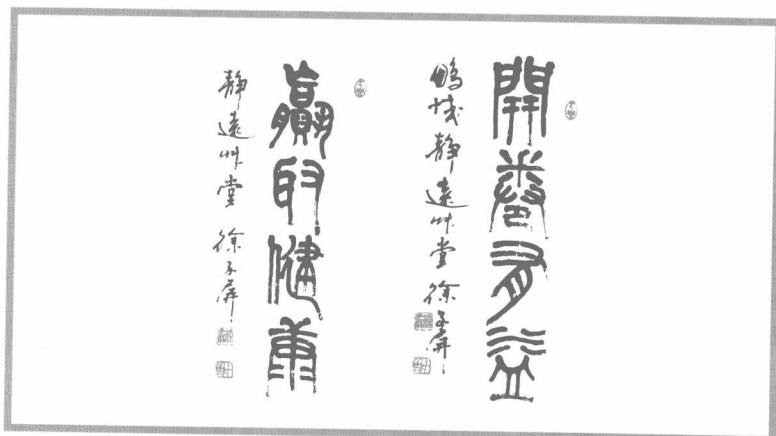 開卷有益
鵬城靜遠艸堂 徐子屏
贏取健康
靜遠艸堂 徐子屏